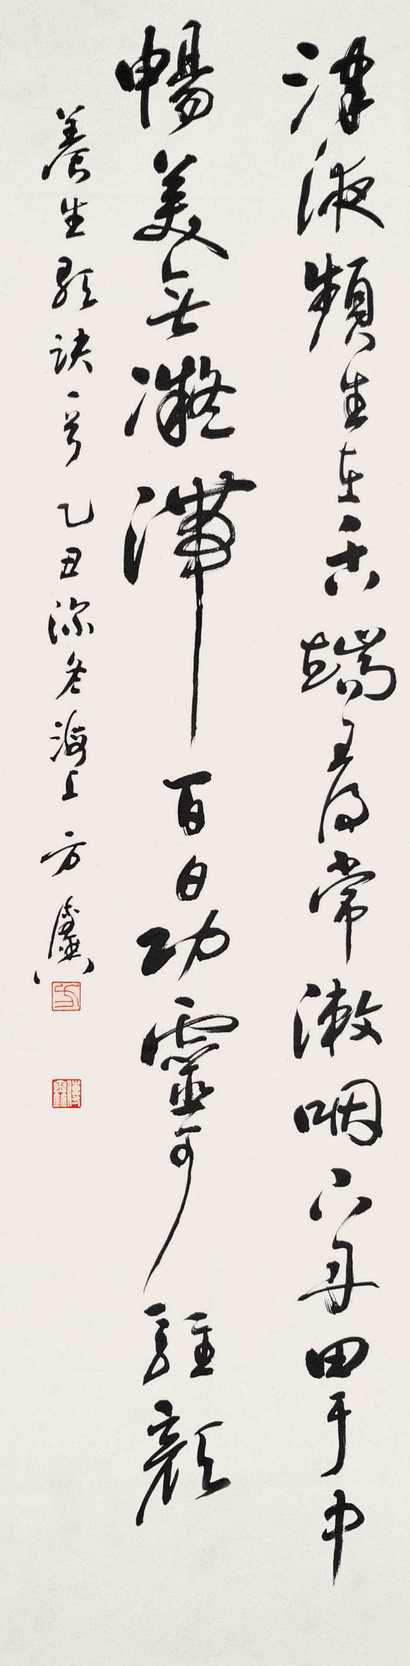 津液頻生在舌端尋常漱咽下丹田于中
暢美無凝滯百日功靈可駐顏
養生歌訣一首乙丑深冬海上方